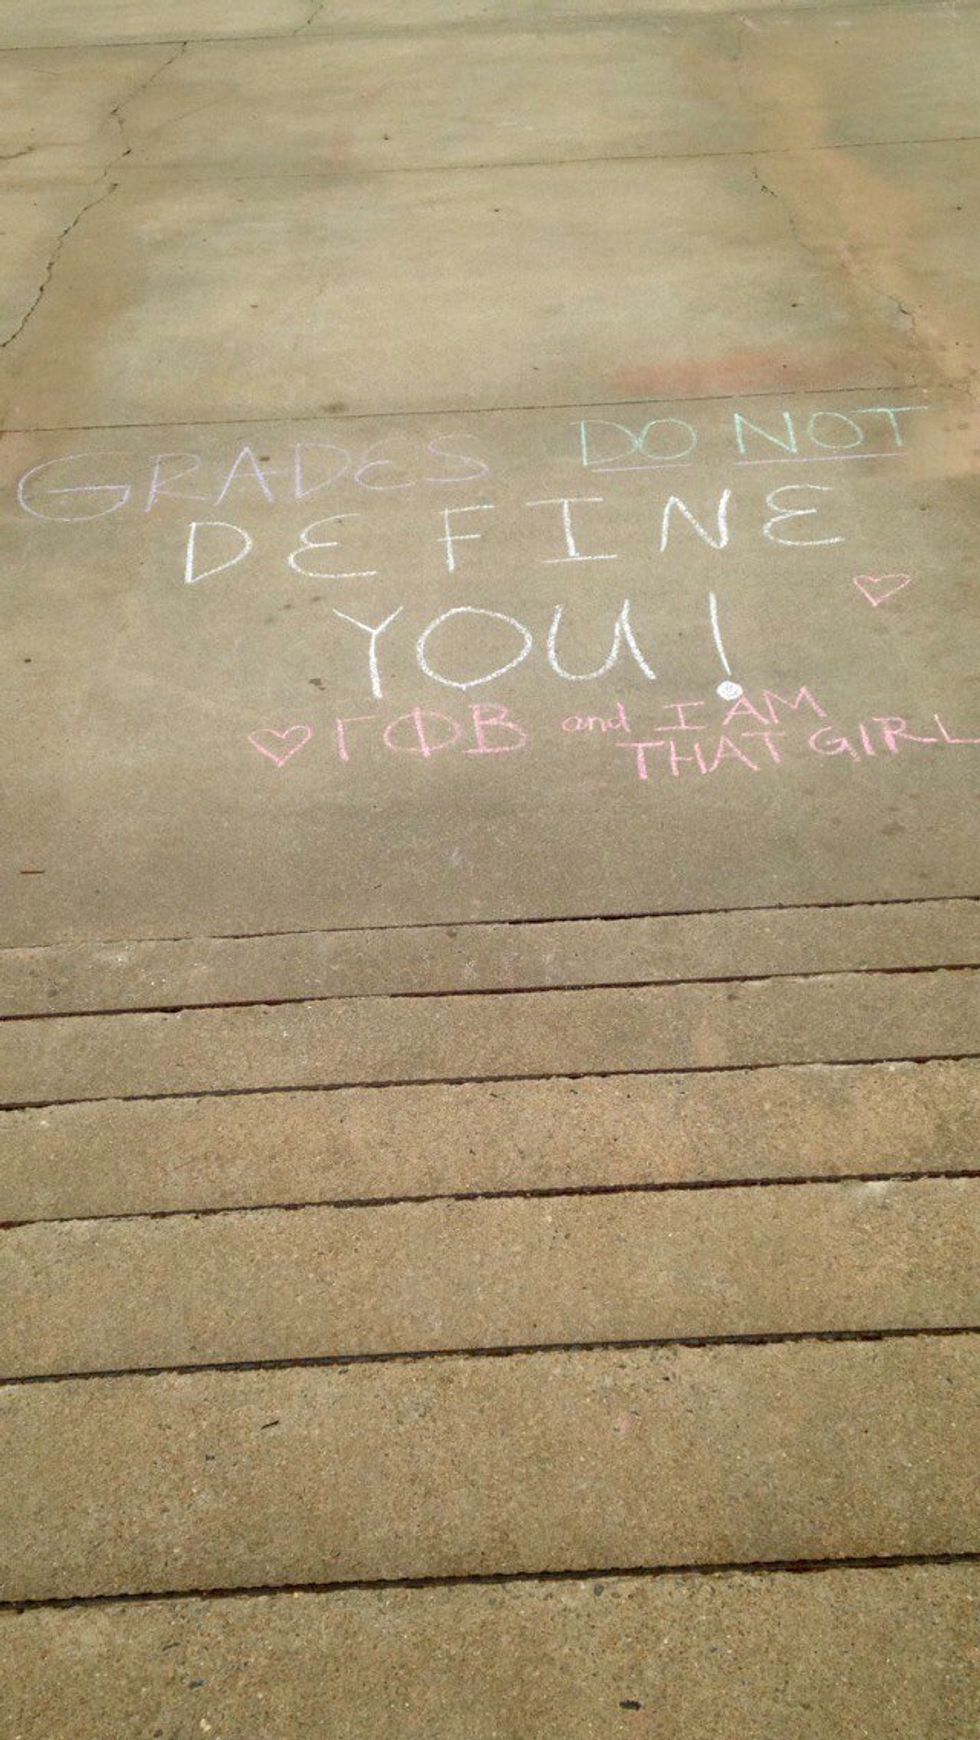 GRADES DO NOT
DEFINE
YOU! ♡
♡ ΓΦΒ and I AM
THAT GIRL